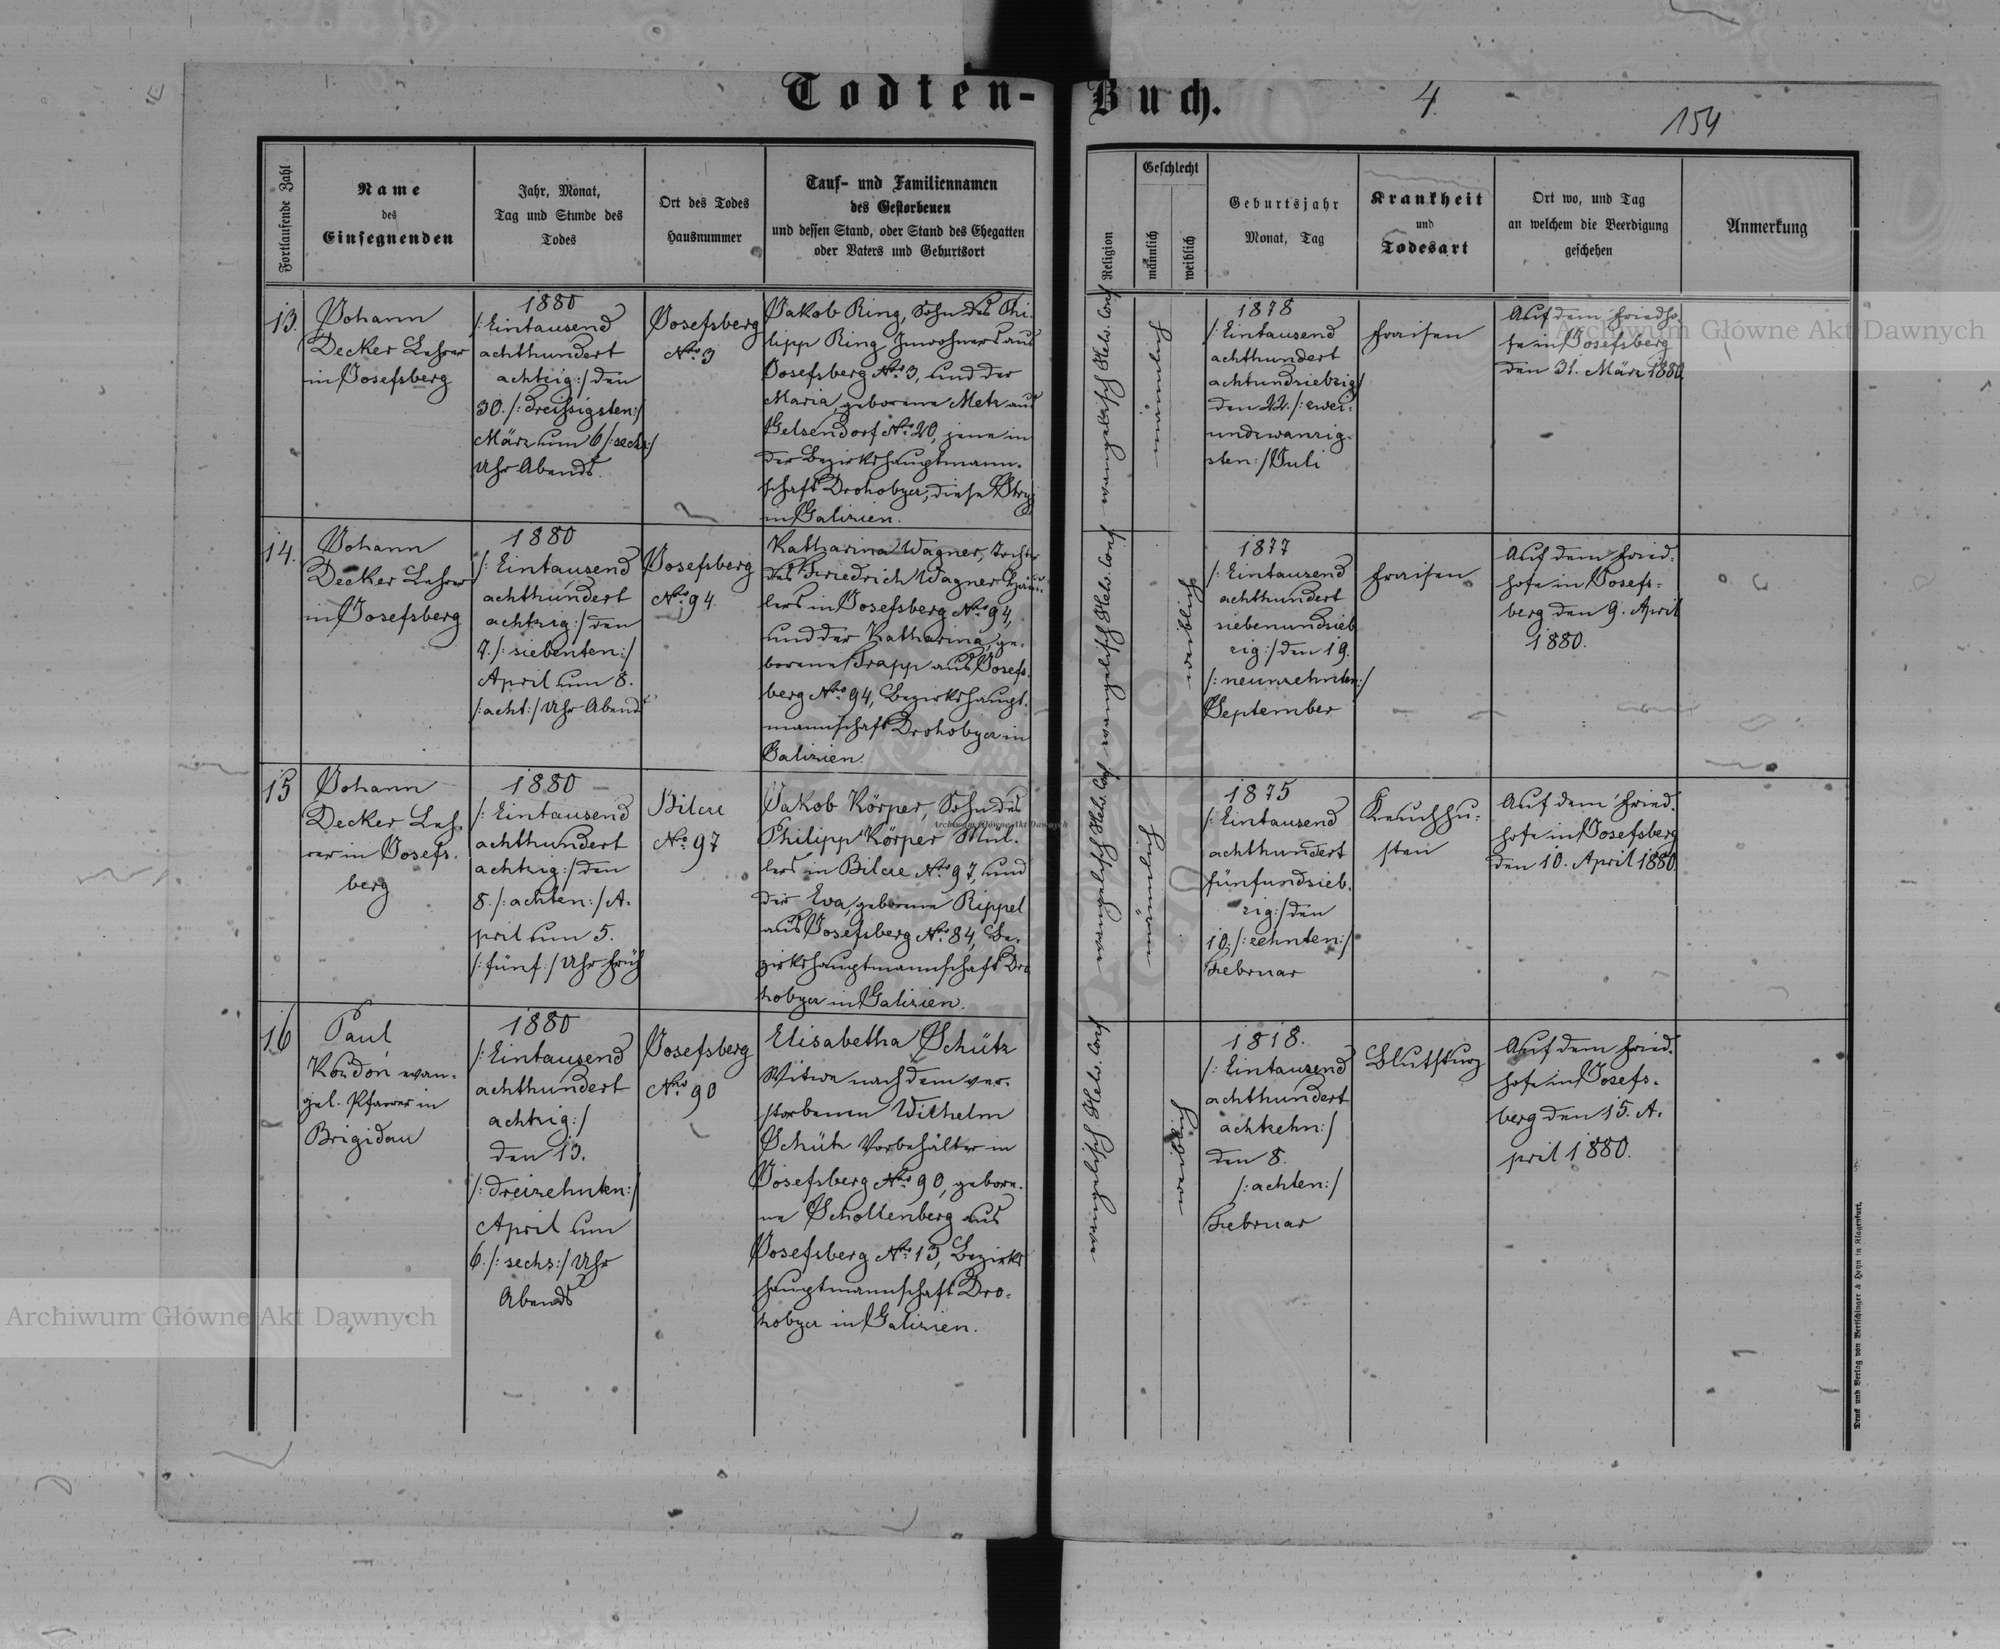 Todten-Buch.
4.
154
Fortlaufende Zahl
Name
des
Einsegnenden
Jahr, Monat,
Tag und Stunde des
Todes
Ort des Todes
Hausnummer
Tauf- und Familiennamen
des Gestorbenen
und dessen Stand, oder Stand des Ehegatten
oder Vaters und Geburtsort
Religion
Geschlecht
männlich
weiblich
Geburtsjahr
Monat, Tag
Krankheit
und
Todesart
Ort wo, und Tag
an welchem die Beerdigung
geschehen
Anmerkung
13.
Johann
Decker Lehrer
in Josefsberg
1880
/: Eintausend
achthundert
achtzig :/ den
30. /: dreißigsten :/
März um 6 /: sechs :/
Uhr Abends.
Josefsberg
No 3
Jakob Ring, Sohn des Phi-
lipp Ring Inwohners aus
Josefsberg No 3, und der
Maria, geborene Metz aus
Gelsendorf No 20, jene in
der Bezirkshauptmann-
schaft Drohobycz, diese Stryj
in Galizien.
evangelisch Helv. Conf
männlich
1878
/: Eintausend
achthundert
achtundsiebzig :/
den 22. /: zwei-
undzwanzig-
sten :/ Juli
Fraisen
Auf dem Friedho-
fe in Josefsberg
den 31. März 1880
14.
Johann
Decker Lehrer
in Josefsberg
1880
/: Eintausend
achthundert
achtzig :/ den
7. /: siebenten :/
April um 8.
/: acht :/ Uhr Abends
Josefsberg
No 94.
Katharina Wagner, Tochter
des Friedrich Wagner Häus-
lers in Josefsberg No 94,
und der Katharina, ge-
borene Trapp aus Josefs-
berg No 94, Bezirkshaupt-
mannschaft Drohobycz in
Galizien.
evangelisch Helv. Conf
weiblich
1877
/: Eintausend
achthundert
siebenundsieb
zig :/ den 19.
/: neunzehnten :/
September
Fraisen
Auf dem Fried-
hofe in Josefs-
berg den 9. April
1880.
15
Johann
Decker Leh-
rer in Josefs-
berg
1880
/: Eintausend
achthundert
achtzig :/ den
8. /: achten :/ A-
pril um 5.
/: fünf :/ Uhr Früh
Bilcze
No 97
Jakob Körper, Sohn des
Philipp Körper Mül-
lers in Bilcze No 97, und
der Eva, geborene Rippel
aus Josefsberg No 84, Be-
zirkshauptmannschaft Dro
hobycz in Galizien.
evangelisch Helv. Conf
männlich
1875
/: Eintausend
achthundert
fünfundsieb-
zig :/ den
10. /: zehnten :/
Februar
Keuchhu-
sten
Auf dem Fried-
hofe in Josefsberg
den 10. April 1880.
16
Paul
Kozdon, evan-
gel. Pfarrer in
Brigidau
1880
/: Eintausend
achthundert
achtzig :/
den 13.
/: dreizehnten :/
April um
6. /: sechs :/ Uhr
Abends
Josefsberg
No 90
Elisabetha Schütz
Witwe nach dem ver-
storbenen Wilhelm
Schütz Vorbehälter in
Josefsberg No 90, gebore-
ne Schollenberg aus
Josefsberg No 13, Bezirks
hauptmannschaft Dro-
hobycz in Galizien.
evangelisch Helv. Conf
weiblich
1818.
/: Eintausend
achthundert
achtzehn :/
den 8.
/: achten :/
Februar
Blutsturz
Auf dem Fried-
hofe in Josefs-
berg den 15. A-
pril 1880.
Druck und Verlag von Bertschinger & Heyn in Klagenfurt.
Archiwum Główne Akt Dawnych
Archiwum Główne Akt Dawnych
Archiwum Główne Akt Dawnych